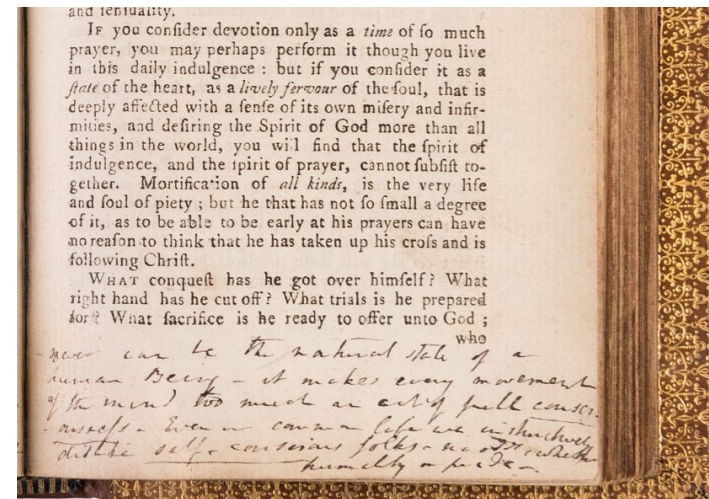 and ſenſuality.
IF you conſider devotion only as a time of ſo much
prayer, you may perhaps perform it though you live
in this daily indulgence : but if you conſider it as a
ſtate of the heart, as a lively fervour of the ſoul, that is
deeply affected with a ſenſe of its own miſery and infir-
mities, and deſiring the Spirit of God more than all
things in the world, you will find that the ſpirit of
indulgence, and the ſpirit of prayer, cannot ſubſiſt to-
gether. Mortification of all kinds, is the very life
and ſoul of piety ; but he that has not ſo ſmall a degree
of it, as to be able to be early at his prayers can have
no reaſon to think that he has taken up his croſs and is
following Chriſt.
WHAT conqueſt has he got over himſelf? What
right hand has he cut off? What trials is he prepared
for? What ſacrifice is he ready to offer unto God ;
who
never can be the natural state of a
human Being - it makes every movement
of the mind too much an act of full consci-
ousness - Even in common life we instinctively
dislike self-conscious folks - no matter whether
humility or pride -